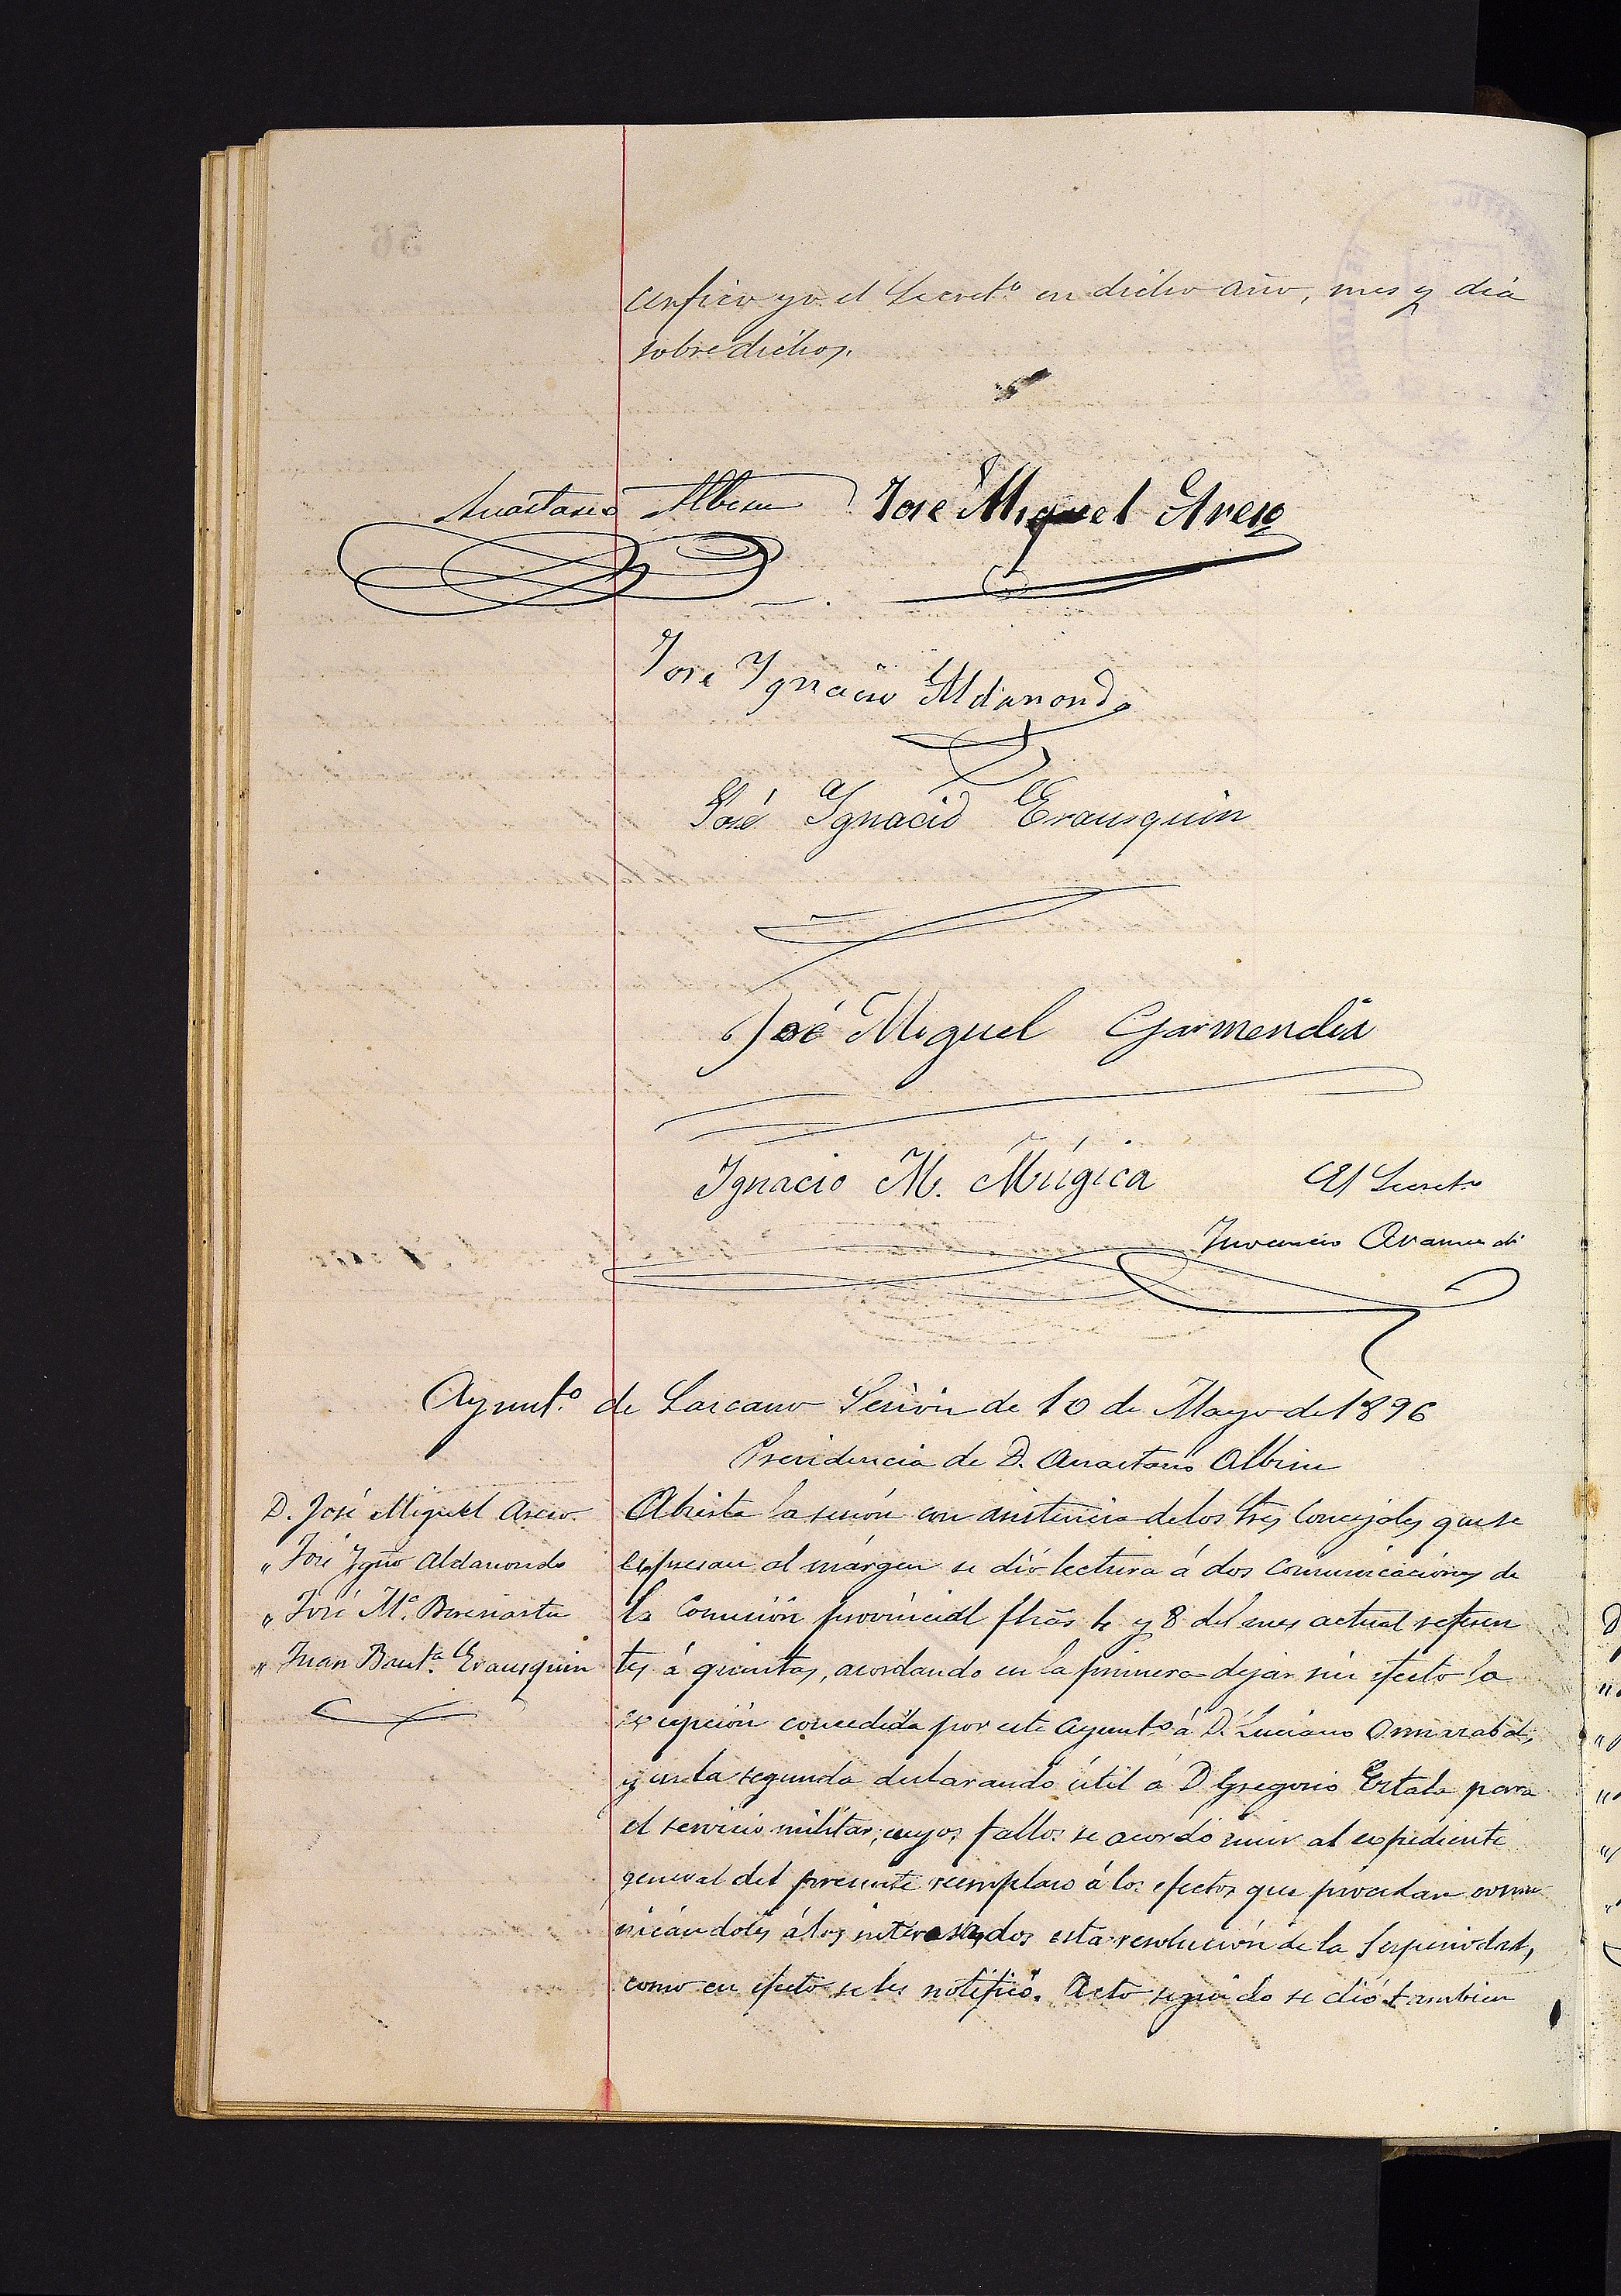 certifico yo el Secret.º en dicho año, mes y dia
sobredichos.
Anastasio Albisu José Miguel Areso
José Ygnacio Aldanondo
José Ygnacio Erausquin
José Miguel Garmendia
Ygnacio M. Múgica El Secret.º
Juvencio Aramendi
Ayunt.º de Lazcano Sesión de 10 de Mayo de 1896
Presidencia de D. Anastasio Albisu
D. José Miguel Areso
" José Ygnº Aldanondo
" José M.ª Berasiartu
" Juan Baut.ª Erausquin
Abierta la sesión con asistencia de los tres Concejales que se
espresan al márgen se dió lectura á dos comunicaciones de
la Comisión provincial fhas 4 y 8 del mes actual referen
tes á quintas, acordando en la primera dejar sin efecto la
excepción concedida por este Ayunt.º á D. Luciano Ormazabal,
y en la segunda declarando útil á D. Gregorio Estala para
el servicio militar; cuyos fallos se acordó unir al expediente
general del presente reemplazo á los efectos que procedan comu
nicándoles á los interesados esta resolución de la Superioridad,
como en efecto se les notificó. Acto seguido se dió tambien